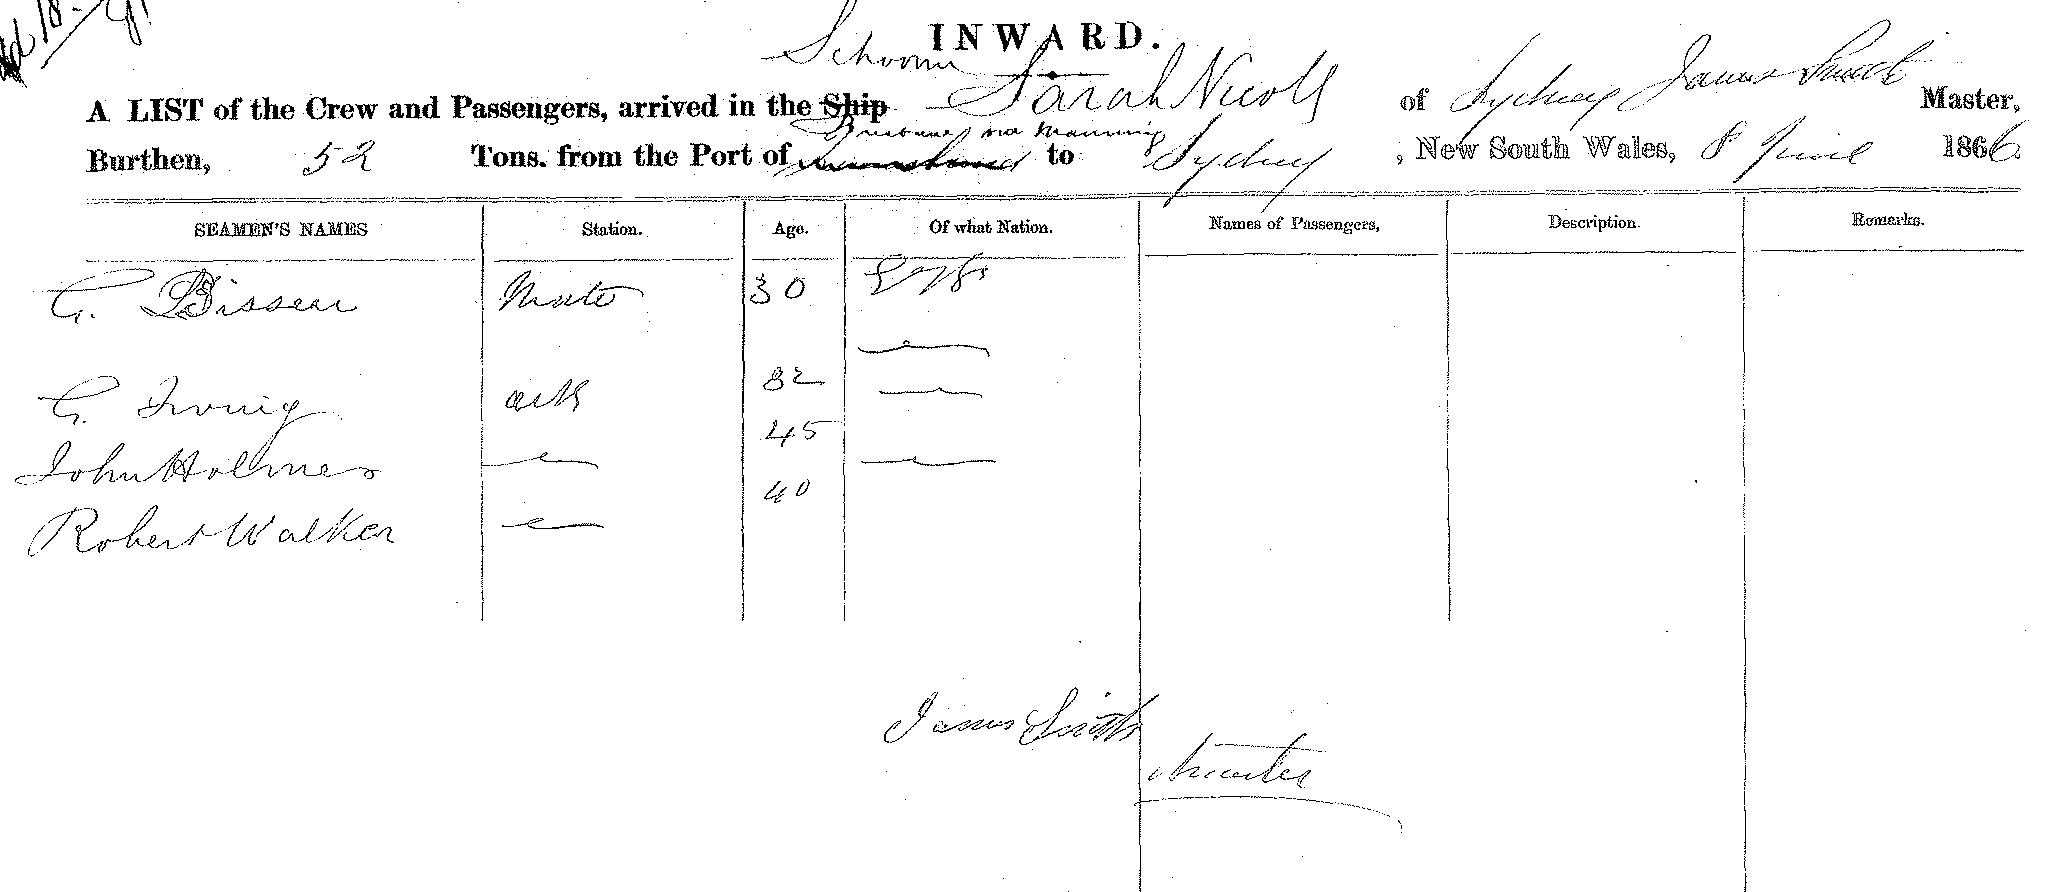 INWARD.
Schooner
A LIST of the Crew and Passengers, arrived in the Ship Sarah Nicoll of Sydney James Smith Master,
Brisbane via Manning
Burthen, 52 Tons. from the Port of to Sydney , New South Wales, 8 June 1866
SEAMEN'S NAMES Station. Age. Of what Nation. Names of Passengers, Description. Remarks.
G. Mate 30
G. Irving 32
John Holmes 45
Robert Walker 40
James Smith
Master